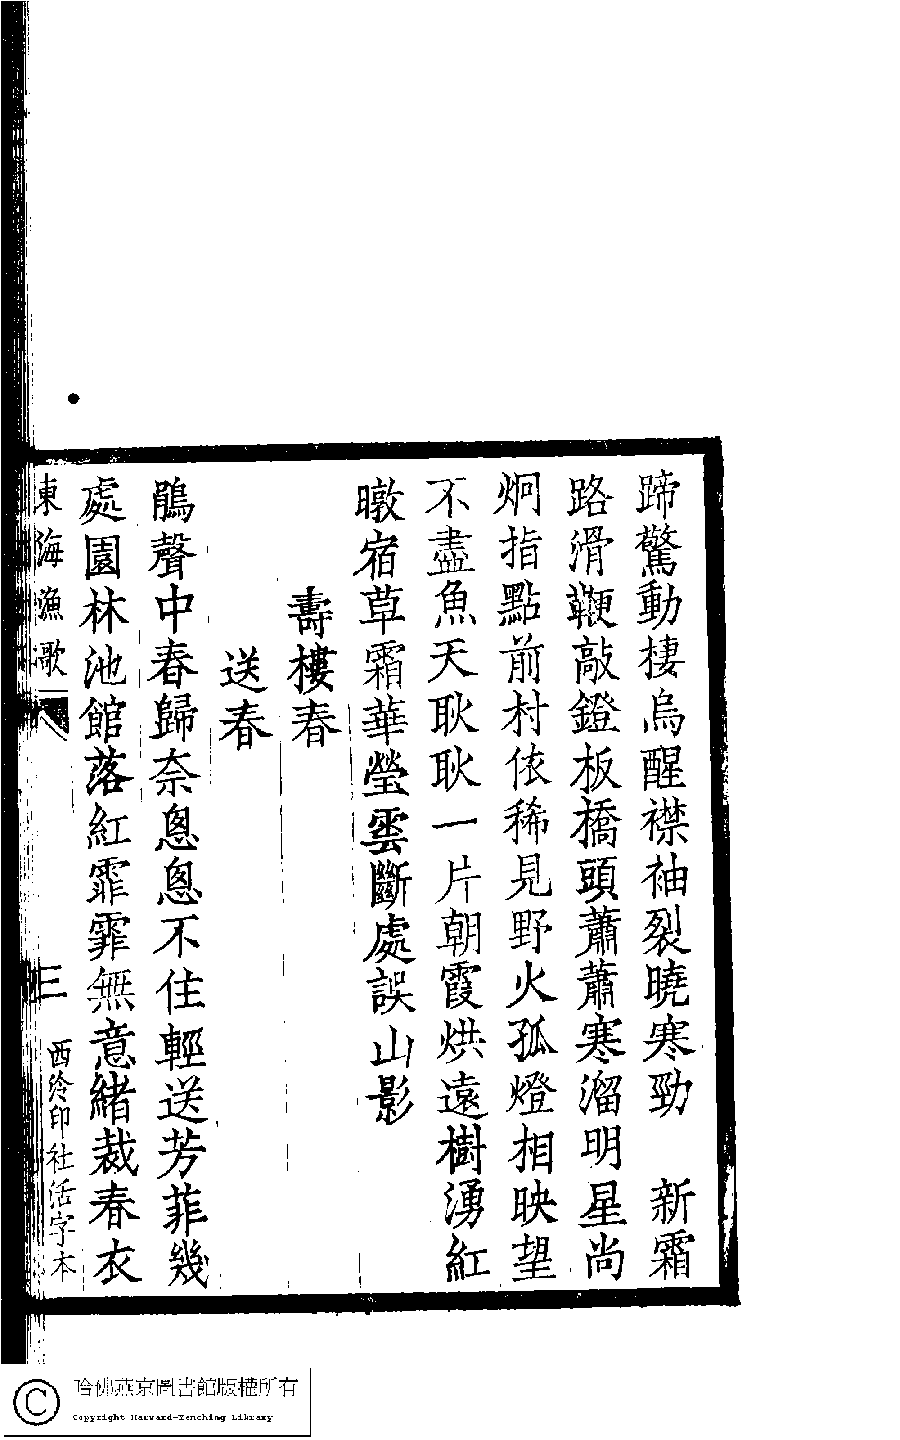 蹄驚動棲烏醒襟袖裂曉寒勁　新霜
路滑鞭敲鐙板橋頭蕭蕭寒溜明星尚
炯指點前村依稀見野火孤燈相映望
不盡魚天耿耿一片朝霞烘遠樹湧紅
暾宿草霜華瑩雲斷處誤山影
壽樓春
送春
鵑聲中春歸奈悤悤不住輕送芳菲幾
處園林池館落紅霏霏無意緒裁春衣
東海漁歌
三
西泠印社活字本
哈佛燕京圖書館版權所有
Copyright Harvard-Yenching Library